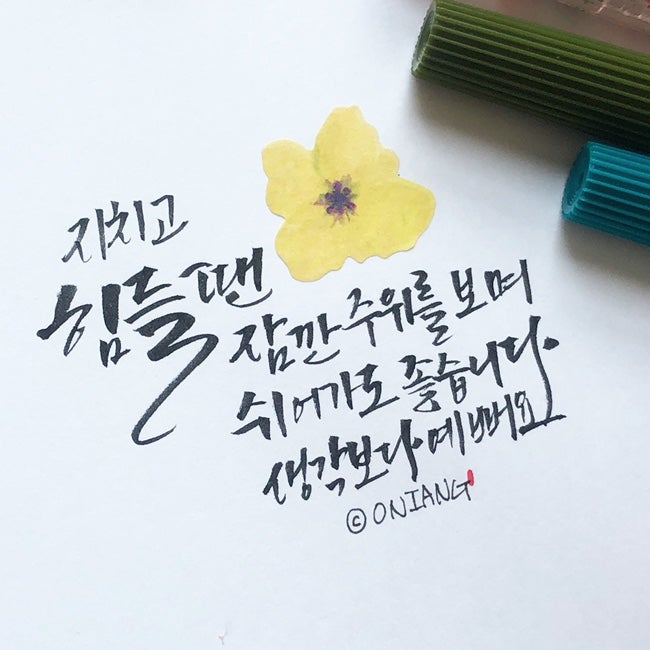 지치고
힘들 땐
잠깐 주위를 보며
쉬어가도 좋습니다.
생각보다 예뻐요
© ONIANG